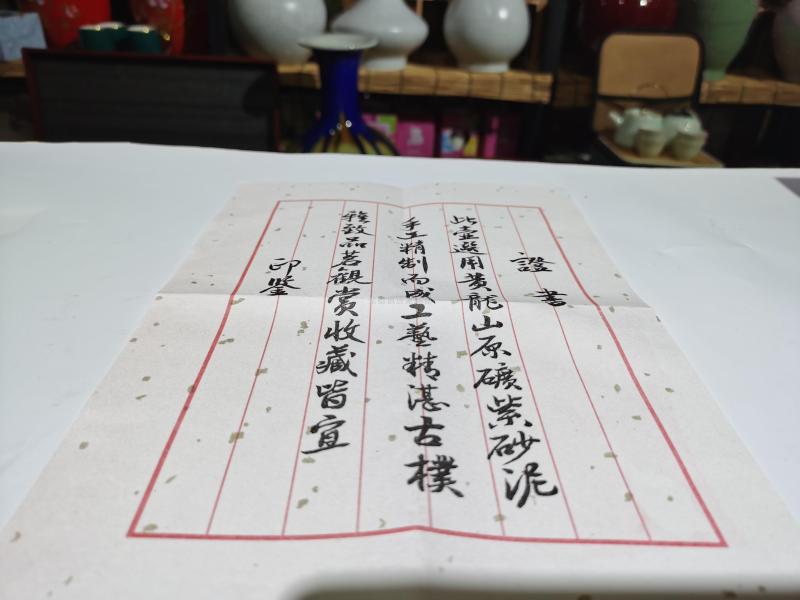 證書
此壺選用黄龍山原礦紫砂泥
手工精制而成工藝精湛古樸
雅致品茗觀賞收藏皆宜
印鑒